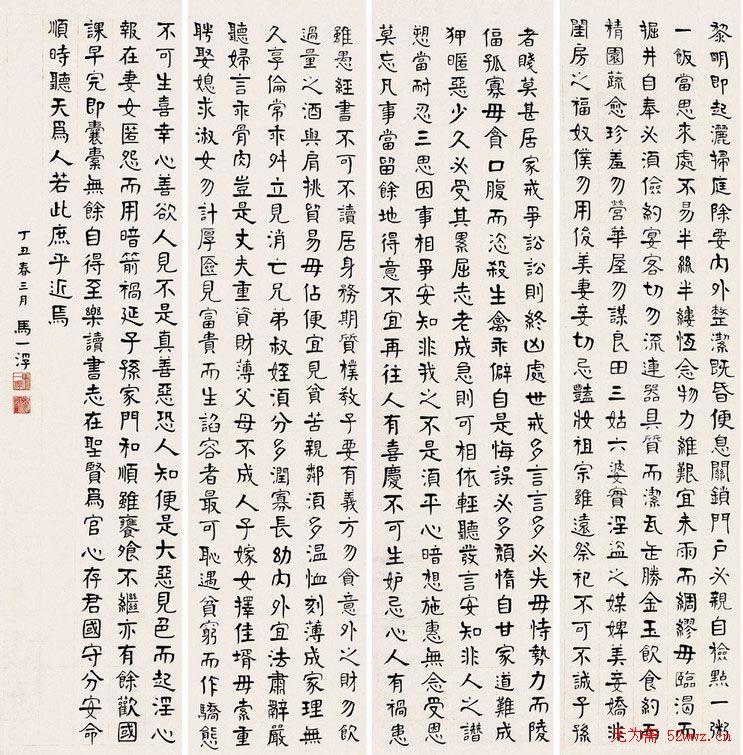 黎明即起灑掃庭除要內外整潔既昏便息關鎖門戶必親自檢點一粥
一飯當思來處不易半絲半縷恆念物力維艱宜未雨而綢繆毋臨渴而
掘井自奉必須儉約宴客切勿流連器具質而潔瓦缶勝金玉飲食約而
精園蔬愈珍羞勿營華屋勿謀良田三姑六婆實淫盜之媒婢美妾嬌非
閨房之福奴僕勿用俊美妻妾切忌豔妝祖宗雖遠祭祀不可不誠子孫
者賤莫甚居家戒爭訟訟則終凶處世戒多言言多必失毋恃勢力而陵
偪孤寡毋貪口腹而恣殺生禽乖僻自是悔誤必多頹惰自甘家道難成
狎暱惡少久必受其累屈志老成急則可相依輕聽發言安知非人之譖
愬當耐忍三思因事相爭安知非我之不是須平心暗想施惠無念受恩
莫忘凡事當留餘地得意不宜再往人有喜慶不可生妒忌心人有禍患
雖愚經書不可不讀居身務期質樸教子要有義方勿貪意外之財勿飲
過量之酒與肩挑貿易毋佔便宜見貧苦親鄰須多溫恤刻薄成家理無
久享倫常乖舛立見消亡兄弟叔姪須分多潤寡長幼內外宜法肅辭嚴
聽婦言乖骨肉豈是丈夫重資財薄父母不成人子嫁女擇佳壻毋索重
聘娶媳求淑女勿計厚匳見富貴而生諂容者最可恥遇貧窮而作驕態
不可生喜幸心善欲人見不是真善惡恐人知便是大惡見色而起淫心
報在妻女匿怨而用暗箭禍延子孫家門和順雖饔飧不繼亦有餘歡國
課早完即囊橐無餘自得至樂讀書志在聖賢爲官心存君國守分安命
順時聽天爲人若此庶乎近焉
丁丑春三月 馬一浮
52wwz.cn